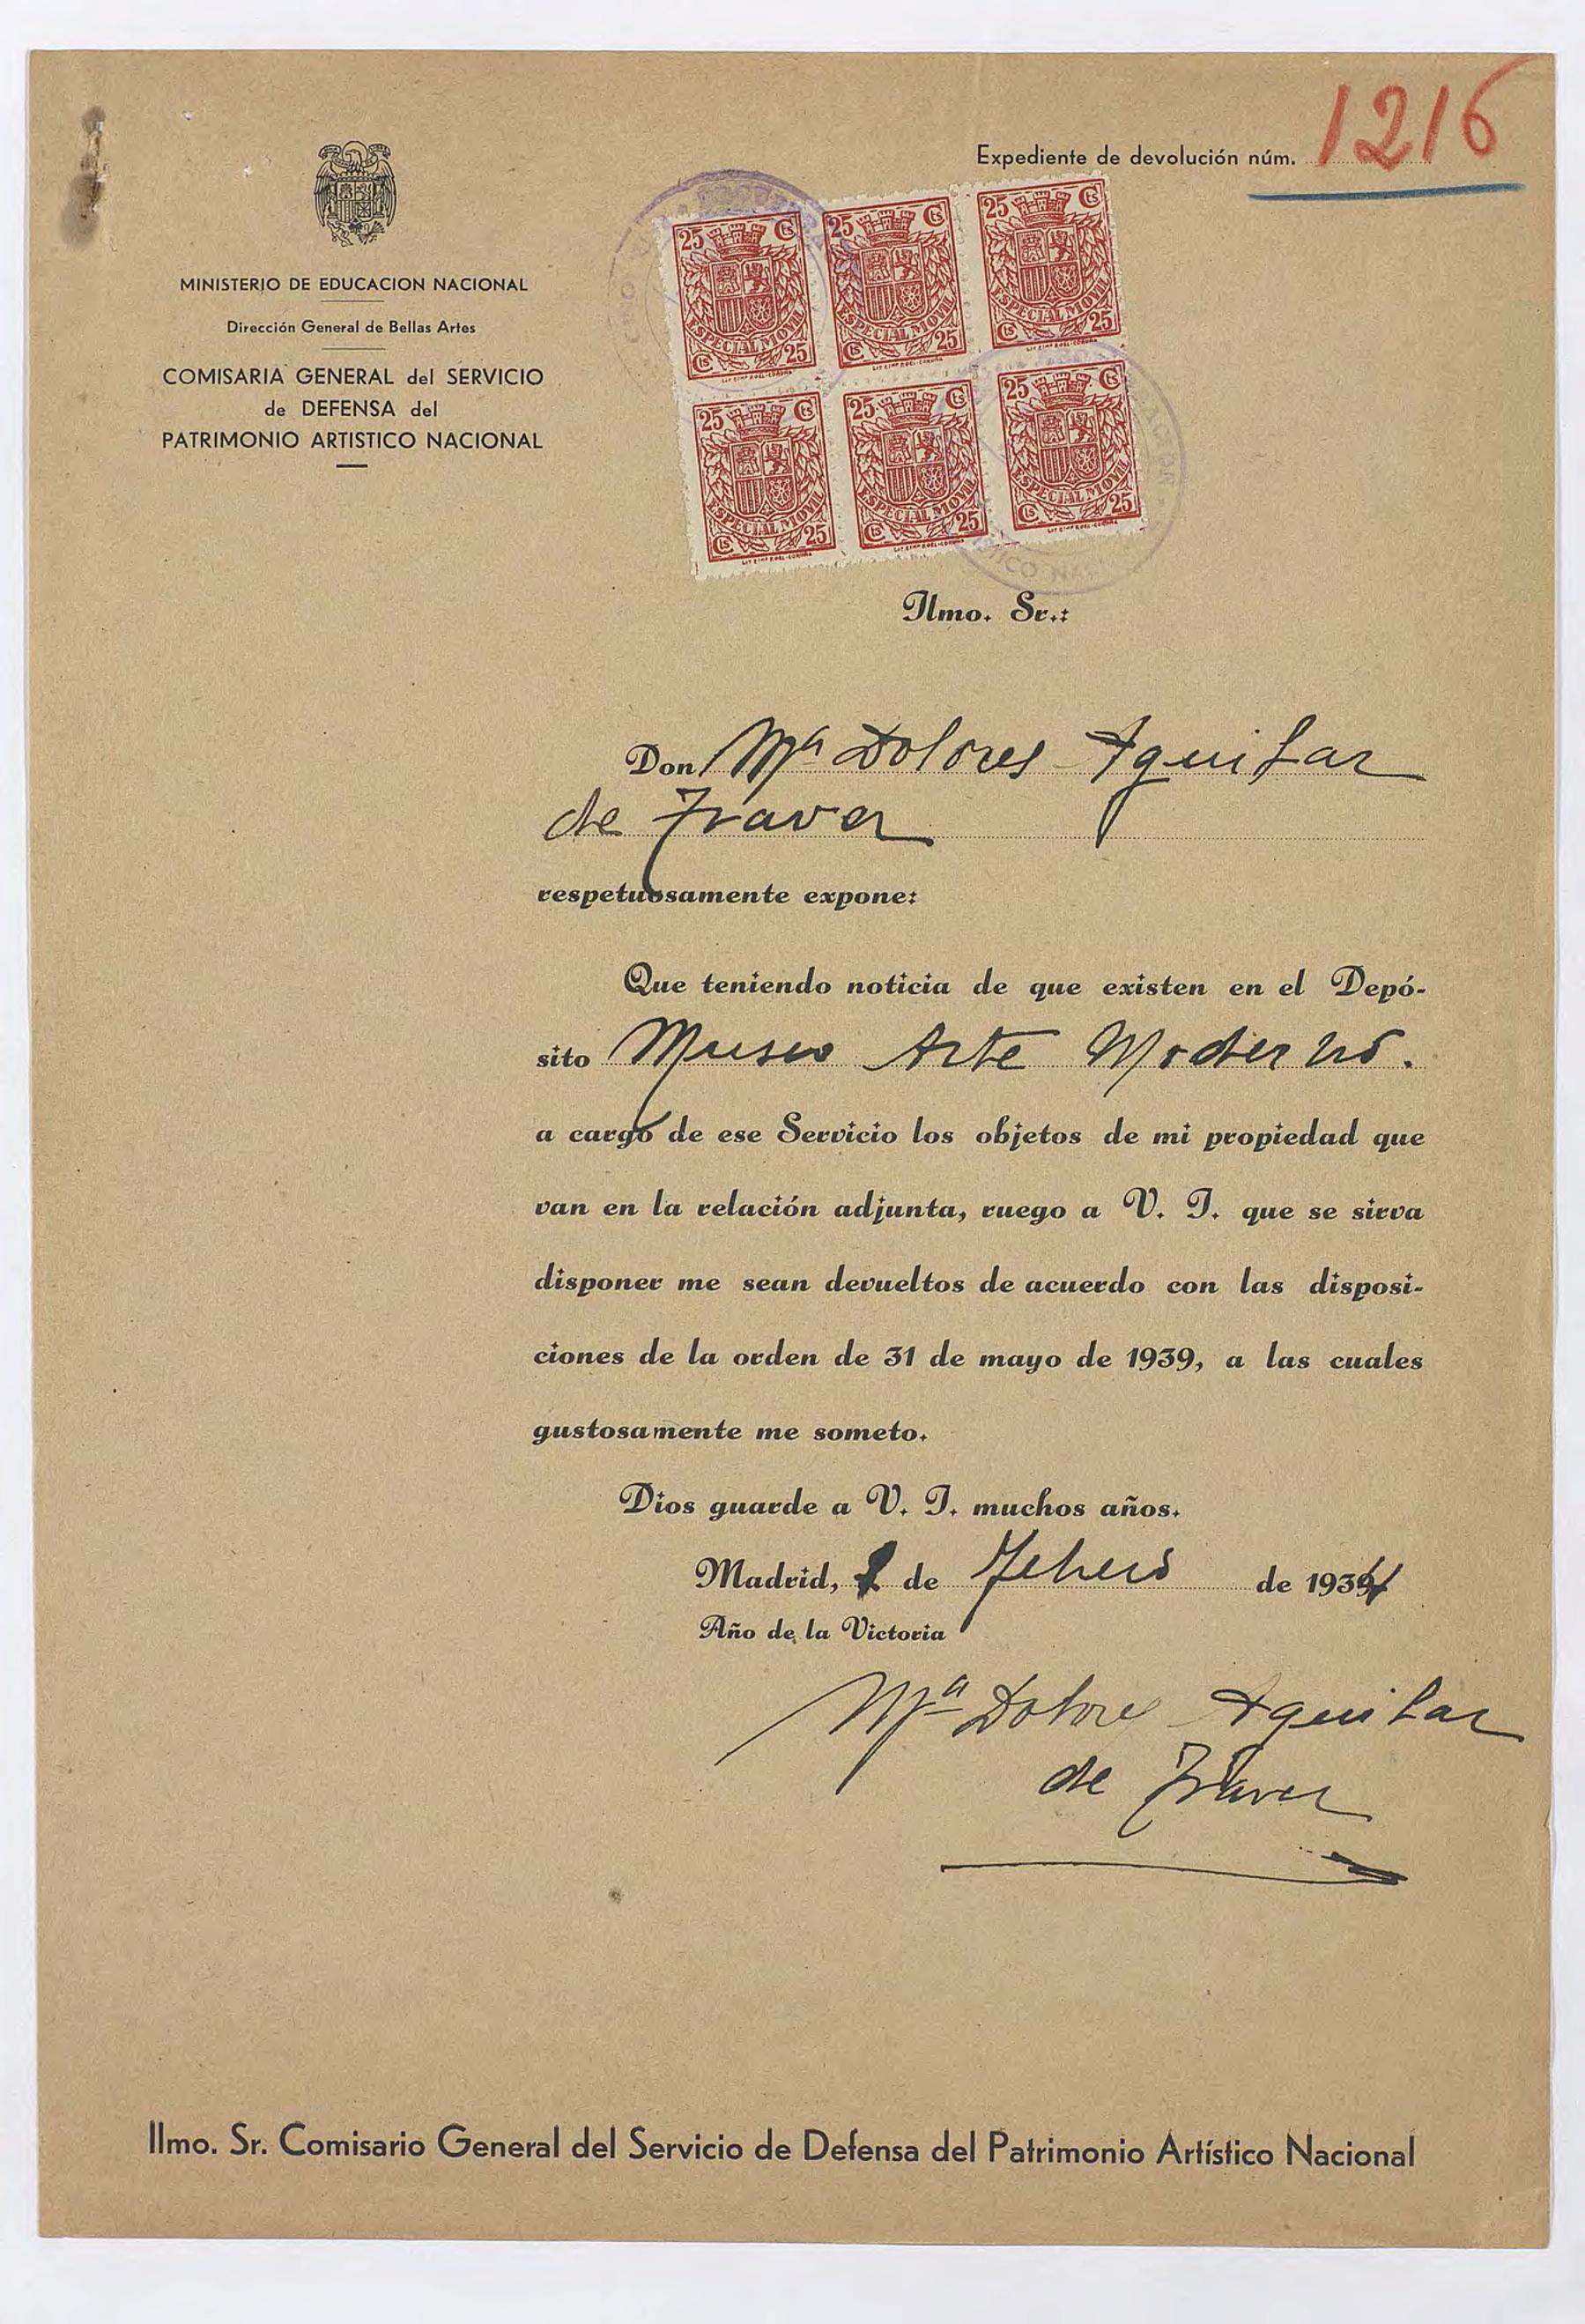 Expediente de devolución núm. 1216
MINISTERIO DE EDUCACION NACIONAL
Dirección General de Bellas Artes
COMISARIA GENERAL del SERVICIO
de DEFENSA del
PATRIMONIO ARTISTICO NACIONAL
25 Cts 25 Cts 25 Cts
ESPECIAL MOVIL ESPECIAL MOVIL ESPECIAL MOVIL
Cts 25 Cts 25 Cts 25
25 Cts 25 Cts 25 Cts
ESPECIAL MOVIL ESPECIAL MOVIL ESPECIAL MOVIL
Cts 25 Cts 25 Cts 25
Ilmo. Sr.:
Don Mª Dolores Aguilar
de Traver
respetuosamente expone:
Que teniendo noticia de que existen en el Depó-
sito Museo Arte Moderno.
a cargo de ese Servicio los objetos de mi propiedad que
van en la relación adjunta, ruego a V. I. que se sirva
disponer me sean devueltos de acuerdo con las disposi-
ciones de la orden de 31 de mayo de 1939, a las cuales
gustosamente me someto.
Dios guarde a V. I. muchos años.
Madrid, de Febrero de
Año de la Victoria
Mª Dolores Aguilar
de Traver
Ilmo. Sr. Comisario General del Servicio de Defensa del Patrimonio Artístico Nacional